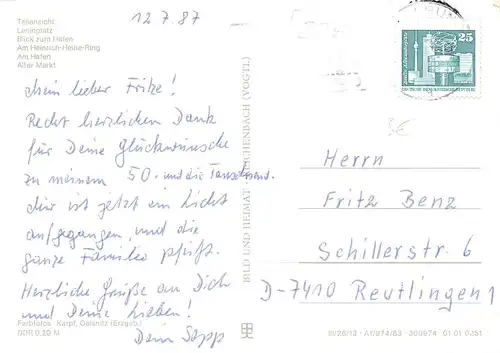 Teilansicht
Leninplatz
Blick zum Hafen
Am Heinrich-Heine-Ring
Am Hafen
Alter Markt
12.7.87
Mein lieber Fritze!
Recht herzlichen Dank
für Deine Glückwünsche
zu meinem 50. und die Tausend.
Mir ist jetzt ein Licht
aufgegangen, und die
ganze Familie pfeift.
Herzliche Grüße an Dich
und Deine Lieben!
Dein Sepp
Farbfotos: Karpf, Oelsnitz (Erzgeb.)
DDR 0,20 M
BILD UND HEIMAT REICHENBACH (VOGTL)
25
DEUTSCHE DEMOKRATISCHE REPUBLIK
3€
Herrn
Fritz Benz
Schillerstr. 6
D-7410 Reutlingen 1
III/26/13 A1/974/83 300974 01 01 0251